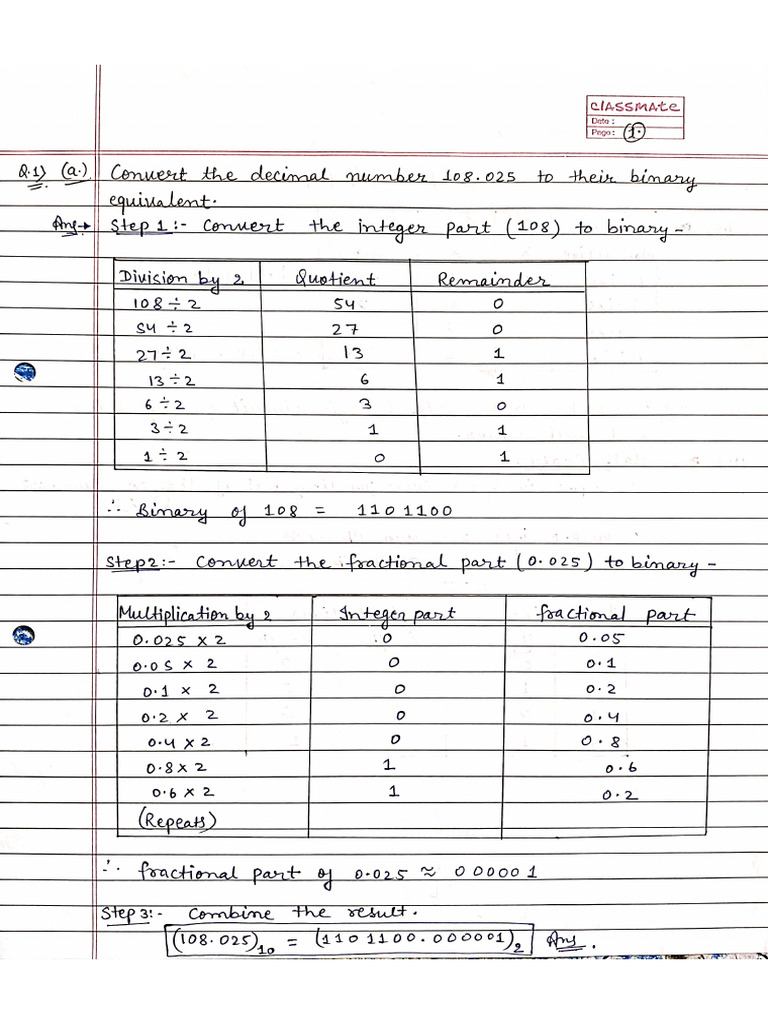 classmate
Date :
Page : 1.
Q.1) (a.) Convert the decimal number 108.025 to their binary
equivalent.
Ans→ Step 1 :- Convert the integer part (108) to binary -
Division by 2 Quotient Remainder
108 ÷ 2 54 0
54 ÷ 2 27 0
27 ÷ 2 13 1
13 ÷ 2 6 1
6 ÷ 2 3 0
3 ÷ 2 1 1
1 ÷ 2 0 1
∴ Binary of 108 = 1101100
Step 2 :- Convert the fractional part (0.025) to binary -
Multiplication by 2 Integer part fractional part
0.025 x 2 0 0.05
0.05 x 2 0 0.1
0.1 x 2 0 0.2
0.2 x 2 0 0.4
0.4 x 2 0 0.8
0.8 x 2 1 0.6
0.6 x 2 1 0.2
(Repeats)
∴ fractional part of 0.025 ≈ 000001
Step 3 :- Combine the result.
(108.025)₁₀ = (1101100.000001)₂ Ans.